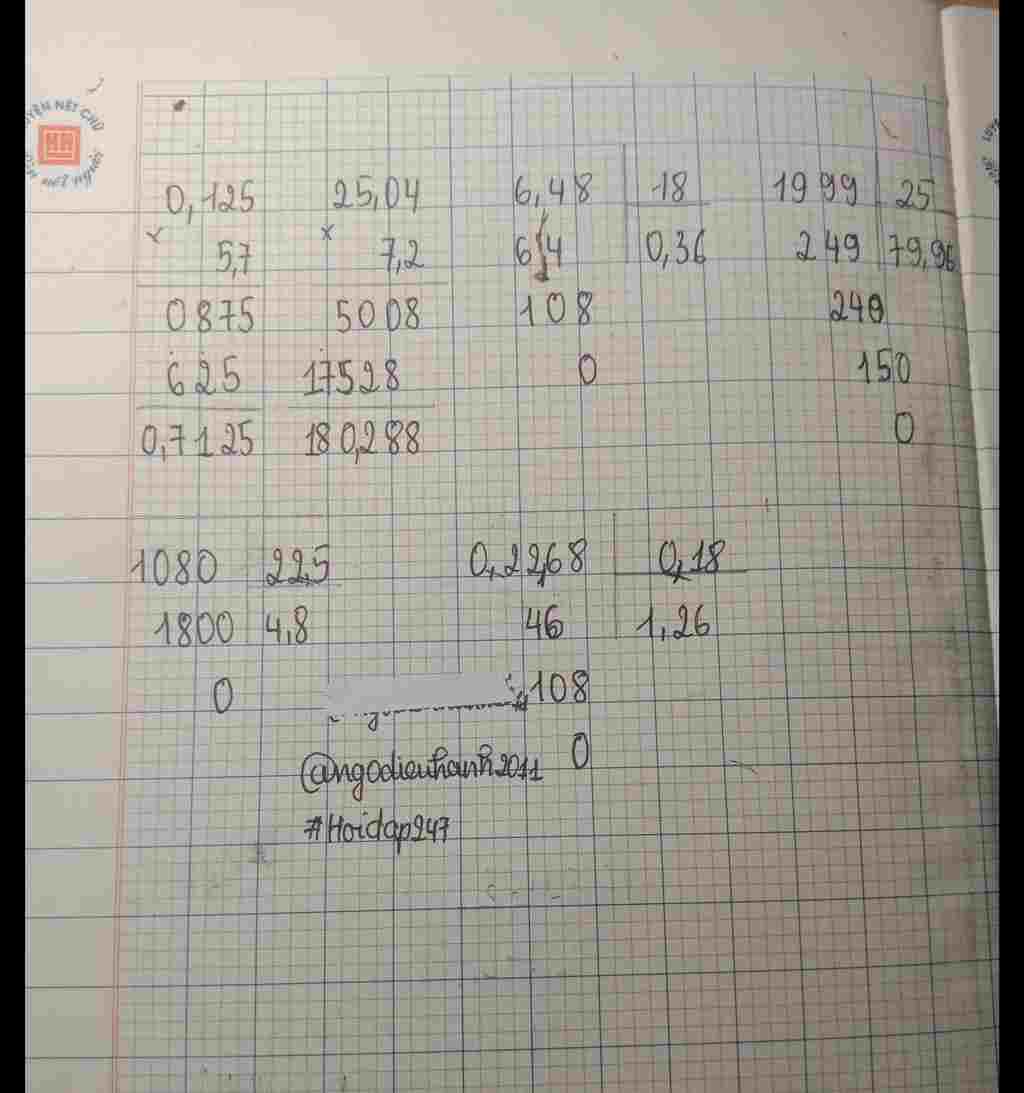 0,125 25,04 6,48 18 1999 25
× 5,7 × 7,2 64 0,36 249 79,96
0875 5008 108 240
625 17528 0 150
0,7125 180,288 0
1080 22,5 0,2268 0,18
1800 4,8 46 1,26
0 108
@ngodieuhanh2011 0
#Hoidap247